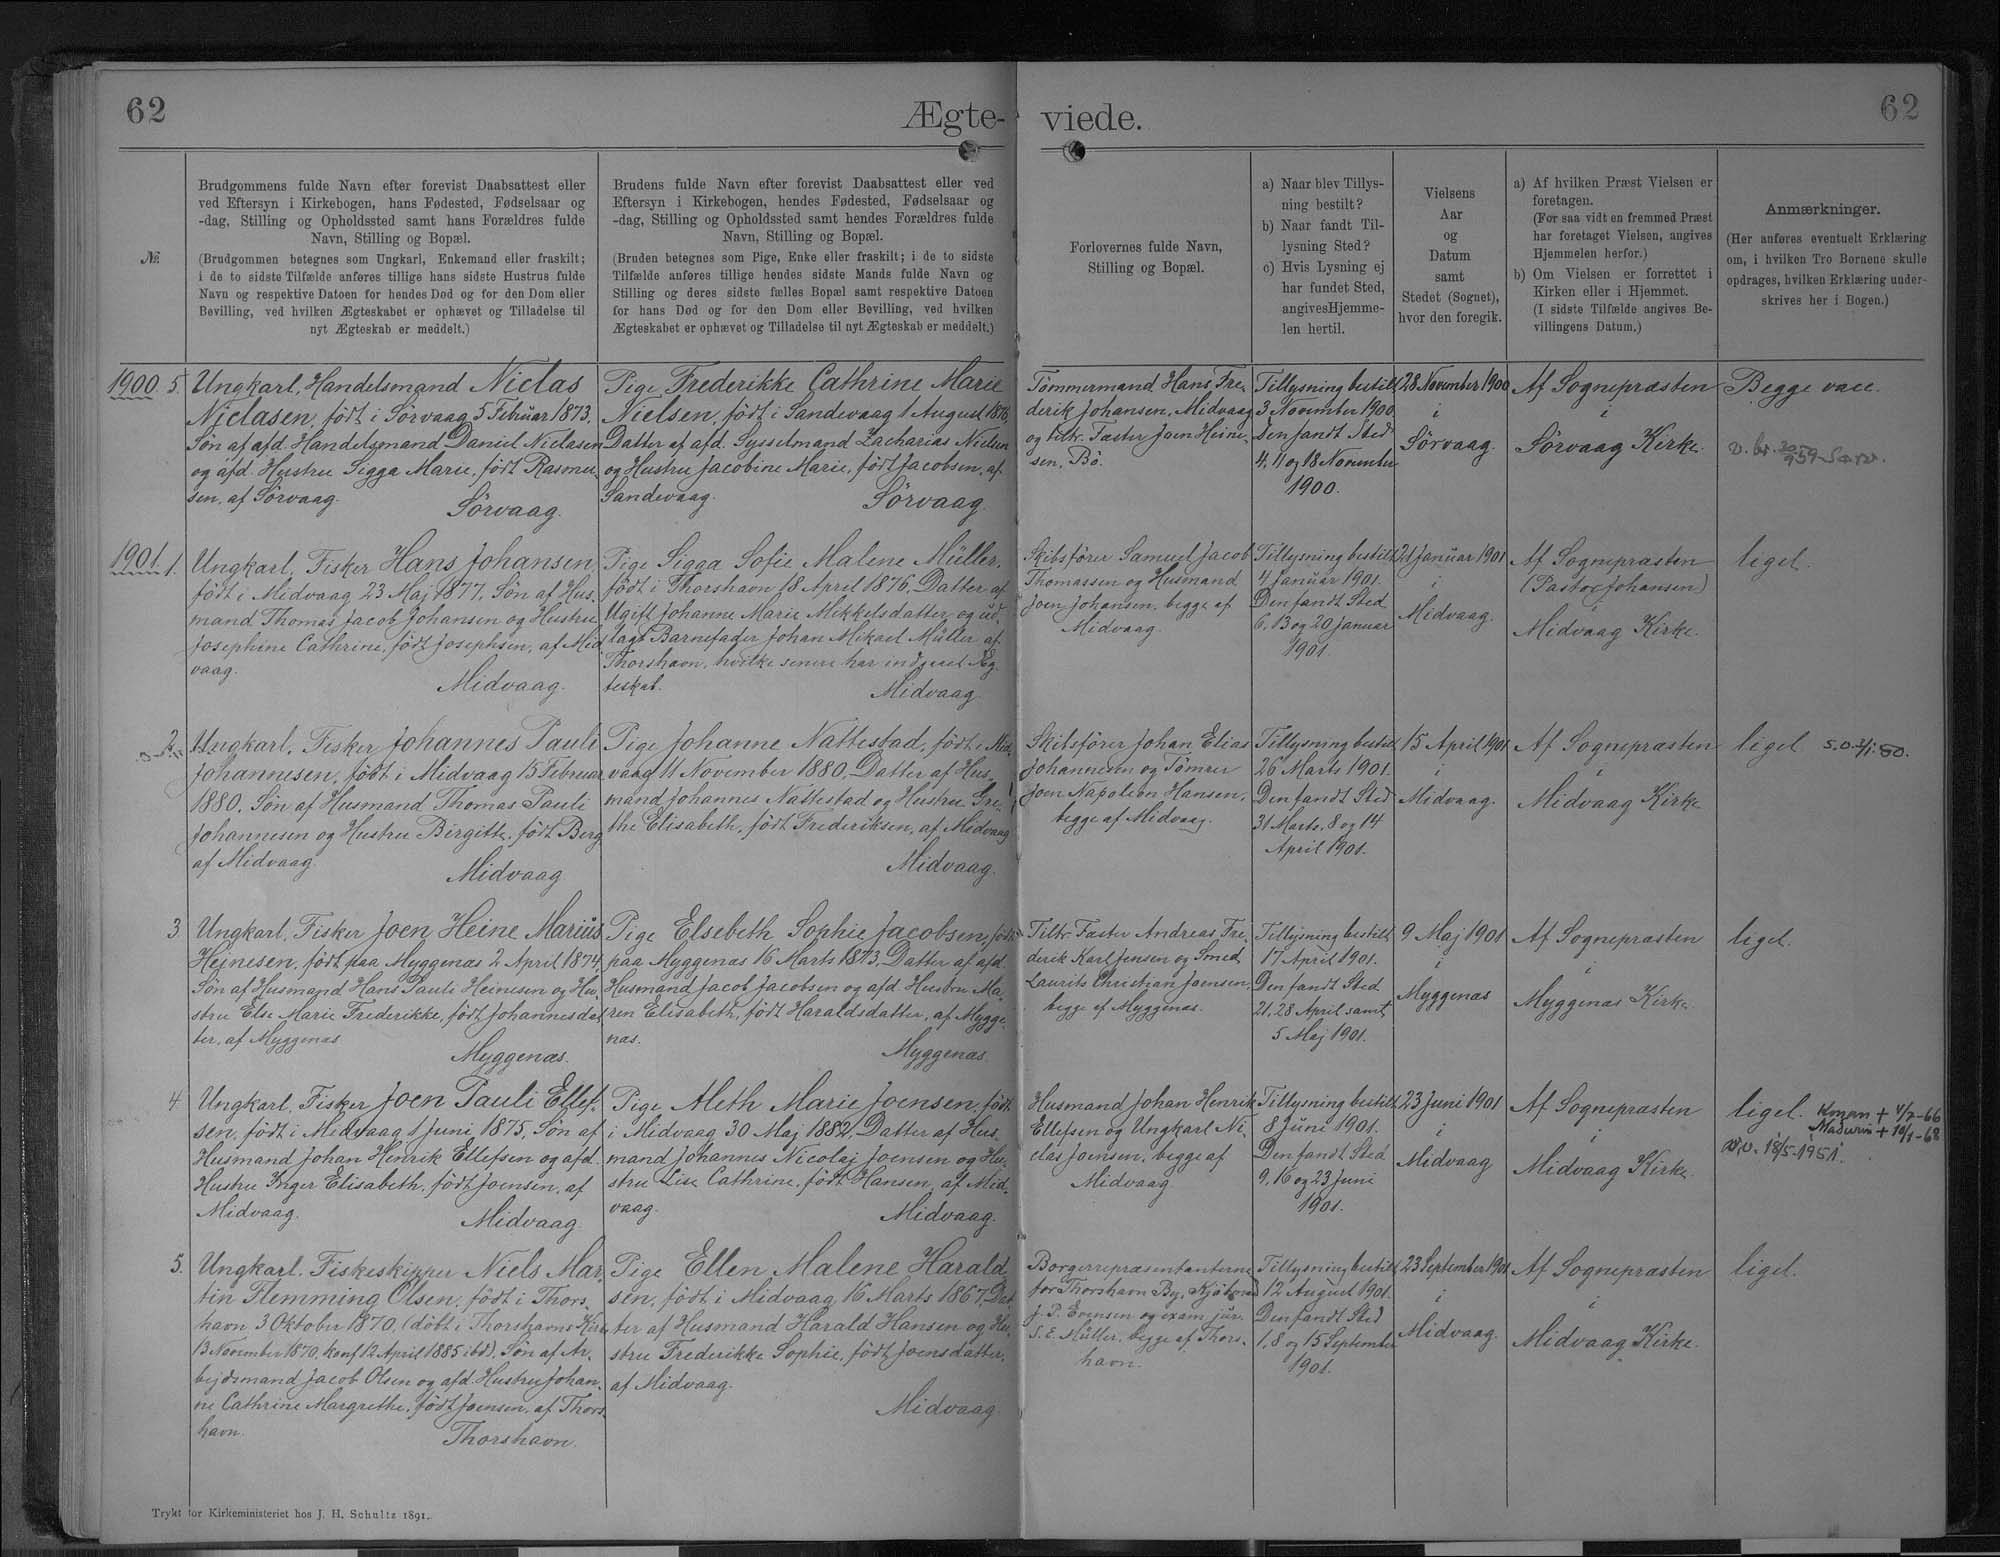 62
Ægte-
viede.
62
№
Brudgommens fulde Navn efter forevist Daabsattest eller
ved Eftersyn i Kirkebogen, hans Fødested, Fødselsaar og
-dag, Stilling og Opholdssted samt hans Forældres fulde
Navn, Stilling og Bopæl.
(Brudgommen betegnes som Ungkarl, Enkemand eller fraskilt;
i de to sidste Tilfælde anføres tillige hans sidste Hustrus fulde
Navn og respektive Datoen for hendes Død og for den Dom eller
Bevilling, ved hvilken Ægteskabet er ophævet og Tilladelse til
nyt Ægteskab er meddelt.)
Brudens fulde Navn efter forevist Daabsattest eller ved
Eftersyn i Kirkebogen, hendes Fødested, Fødselsaar og
-dag, Stilling og Opholdssted samt hendes Forældres fulde
Navn, Stilling og Bopæl.
(Bruden betegnes som Pige, Enke eller fraskilt; i de to sidste
Tilfælde anføres tillige hendes sidste Mands fulde Navn og
Stilling og deres sidste fælles Bopæl samt respektive Datoen
for hans Død og for den Dom eller Bevilling, ved hvilken
Ægteskabet er ophævet og Tilladelse til nyt Ægteskab er meddelt.)
Forlovernes fulde Navn,
Stilling og Bopæl.
a) Naar blev Tillys-
ning bestilt?
b) Naar fandt Til-
lysning Sted?
c) Hvis Lysning ej
har fundet Sted,
angives Hjemme-
len hertil.
Vielsens
Aar
og
Datum
samt
Stedet (Sognet),
hvor den foregik.
a) Af hvilken Præst Vielsen er
foretagen.
(For saa vidt en fremmed Præst
har foretaget Vielsen, angives
Hjemmelen herfor.)
b) Om Vielsen er forrettet i
Kirken eller i Hjemmet.
(I sidste Tilfælde angives Be-
villingens Datum.)
Anmærkninger.
(Her anføres eventuelt Erklæring
om, i hvilken Tro Børnene skulle
opdrages, hvilken Erklæring under-
skrives her i Bogen.)
1900. 5.
Ungkarl, Handelsmand Niclas
Niclasen, født i Sørvaag 5 Februar 1873,
Søn af afd. Handelsmand Daniel Niclasen
og afd. Hustru Sigga Marie, født Rasmus-
sen, af Sørvaag.
Sørvaag.
Pige Frederikke Cathrine Marie
Nielsen, født i Sandevaag 1 August 1876,
Datter af afd. Sysselmand Zacharias Nielsen
og Hustru Jacobine Marie, født Jacobsen, af
Sandevaag.
Sørvaag.
Tømmermand Hans Fre-
derik Johansen, Midvaag
og tiltr. Fæster Joen Heine-
sen, Bø.
Tillysning bestilt
3 November 1900.
Den fandt Sted
4, 11 og 18 November
1900.
28 November 1900
i
Sørvaag.
Af Sognepræsten
i
Sørvaag Kirke.
Begge vacc.
1901. 1.
Ungkarl, Fisker Hans Johansen,
født i Midvaag 23 Maj 1877, Søn af Hus-
mand Thomas Jacob Johansen og Hustru
Josephine Cathrine, født Josephsen, af Mid
vaag.
Midvaag.
Pige Sigga Sofie Malene Müller,
født i Thorshavn 18 April 1876, Datter af
Ugift Johanne Marie Mikkelsdatter og ud-
lagt Barnefader Johan Mikael Müller af
Thorshavn, hvilke senere har indgaaet Æg-
teskab.
Midvaag.
Skibsfører Samuel Jacob
Thomassen og Husmand
Joen Johansen, begge af
Midvaag.
Tillysning bestilt
4 Januar 1901.
Den fandt Sted
6, 13 og 20 Januar
1901.
21 Januar 1901
i
Midvaag.
Af Sognepræsten
(Pastor Johansen)
i
Midvaag Kirke.
ligel.
2.
Ungkarl, Fisker Johannes Pauli
Johannesen, født i Midvaag 15 Februar
1880, Søn af Husmand Thomas Pauli
Johannesen og Hustru Birgitte, født Berg
af Midvaag.
Midvaag
Pige Johanne Nattestad, født i Mid-
vaag 11 November 1880, Datter af Hus-
mand Johannes Nattestad og Hustru Gre-
the Elisabeth, født Frederiksen, af Midvaag
Midvaag.
Skibsfører Johan Elias
Johannesen og Tømrer
Joen Napoleon Hansen,
begge af Midvaag.
Tillysning bestilt
26 Marts 1901.
Den fandt Sted
31 Marts, 8 og 14
April 1901.
15 April 1901
i
Midvaag.
Af Sognepræsten
i
Midvaag Kirke
ligel
3.
Ungkarl, Fisker Joen Heine Marius
Heinesen, født paa Myggenæs 2 April 1874,
Søn af Husmand Hans Pauli Heinesen og Hu-
stru Else Marie Frederikke, født Johannesdat
ter, af Myggenæs
Myggenæs.
Pige Elsebeth Sophie Jacobsen, født
paa Myggenæs 16 Marts 1873, Datter af afd.
Husmand Jacob Jacobsen og afd. Hustru Ma-
ren Elisabeth, født Haraldsdatter, af Mygge-
næs.
Myggenæs.
Tiltr. Fæster Andreas Fre-
derik Karl Jensen og Smed
Laurits Christian Joensen,
begge af Myggenæs.
Tillysning bestilt
17 April 1901.
Den fandt Sted
21, 28 April samt
5 Maj 1901.
9 Maj 1901
i
Myggenæs
Af Sognepræsten
i
Myggenæs Kirke.
ligel.
4
Ungkarl, Fisker Joen Pauli Ellef-
sen, født i Midvaag 1 Juni 1875, Søn af
Husmand Johan Henrik Ellefsen og afd.
Hustru Inger Elisabeth, født Joensen, af
Midvaag.
Midvaag
Pige Meth Marie Joensen, født
i Midvaag 30 Maj 1882, Datter af Hus-
mand Johannes Nicolaj Joensen og Hu-
stru Lise Cathrine, født Hansen, af Mid-
vaag.
Midvaag.
Husmand Johan Henrik
Ellefsen og Ungkarl Ni-
clas Joensen, begge af
Midvaag
Tillysning bestilt
8 Juni 1901.
Den fandt Sted
9, 16 og 23 Juni
1901.
23 Juni 1901
i
Midvaag
Af Sognepræsten
i
Midvaag Kirke.
ligel.
18/5-1951.
5.
Ungkarl, Fiskeskipper Niels Mar-
tin Flemming Olsen, født i Thors-
havn 3 Oktober 1870, (døbt i Thorshavns Kirke
13 November 1870, konf. 12 April 1885 ibd), Søn af Ar-
bejdsmand Jacob Olsen og afd. Hustru Johan-
ne Cathrine Margrethe, født Joensen, af Thors
havn.
Thorshavn.
Pige Ellen Malene Harald
sen, født i Midvaag 16 Marts 1867, Dat
ter af Husmand Harald Hansen og Hu-
stru Frederikke Sophie, født Joensdatter,
af Midvaag.
Midvaag
Borgerrepræsentanterne
for Thorshavn By, Kjøbmd
J. P. Evensen og exam. jur.
S. E. Müller, begge af Thors-
havn.
Tillysning bestilt
12 August 1901.
Den fandt Sted
1, 8 og 15 September
1901.
23 September 1901
i
Midvaag.
Af Sognepræsten
i
Midvaag Kirke.
ligel.
Trykt for Kirkeministeriet hos J. H. Schultz 1891.